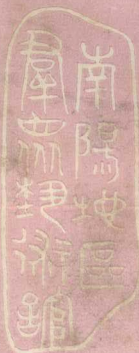 南陽地區
羣眾藝術館